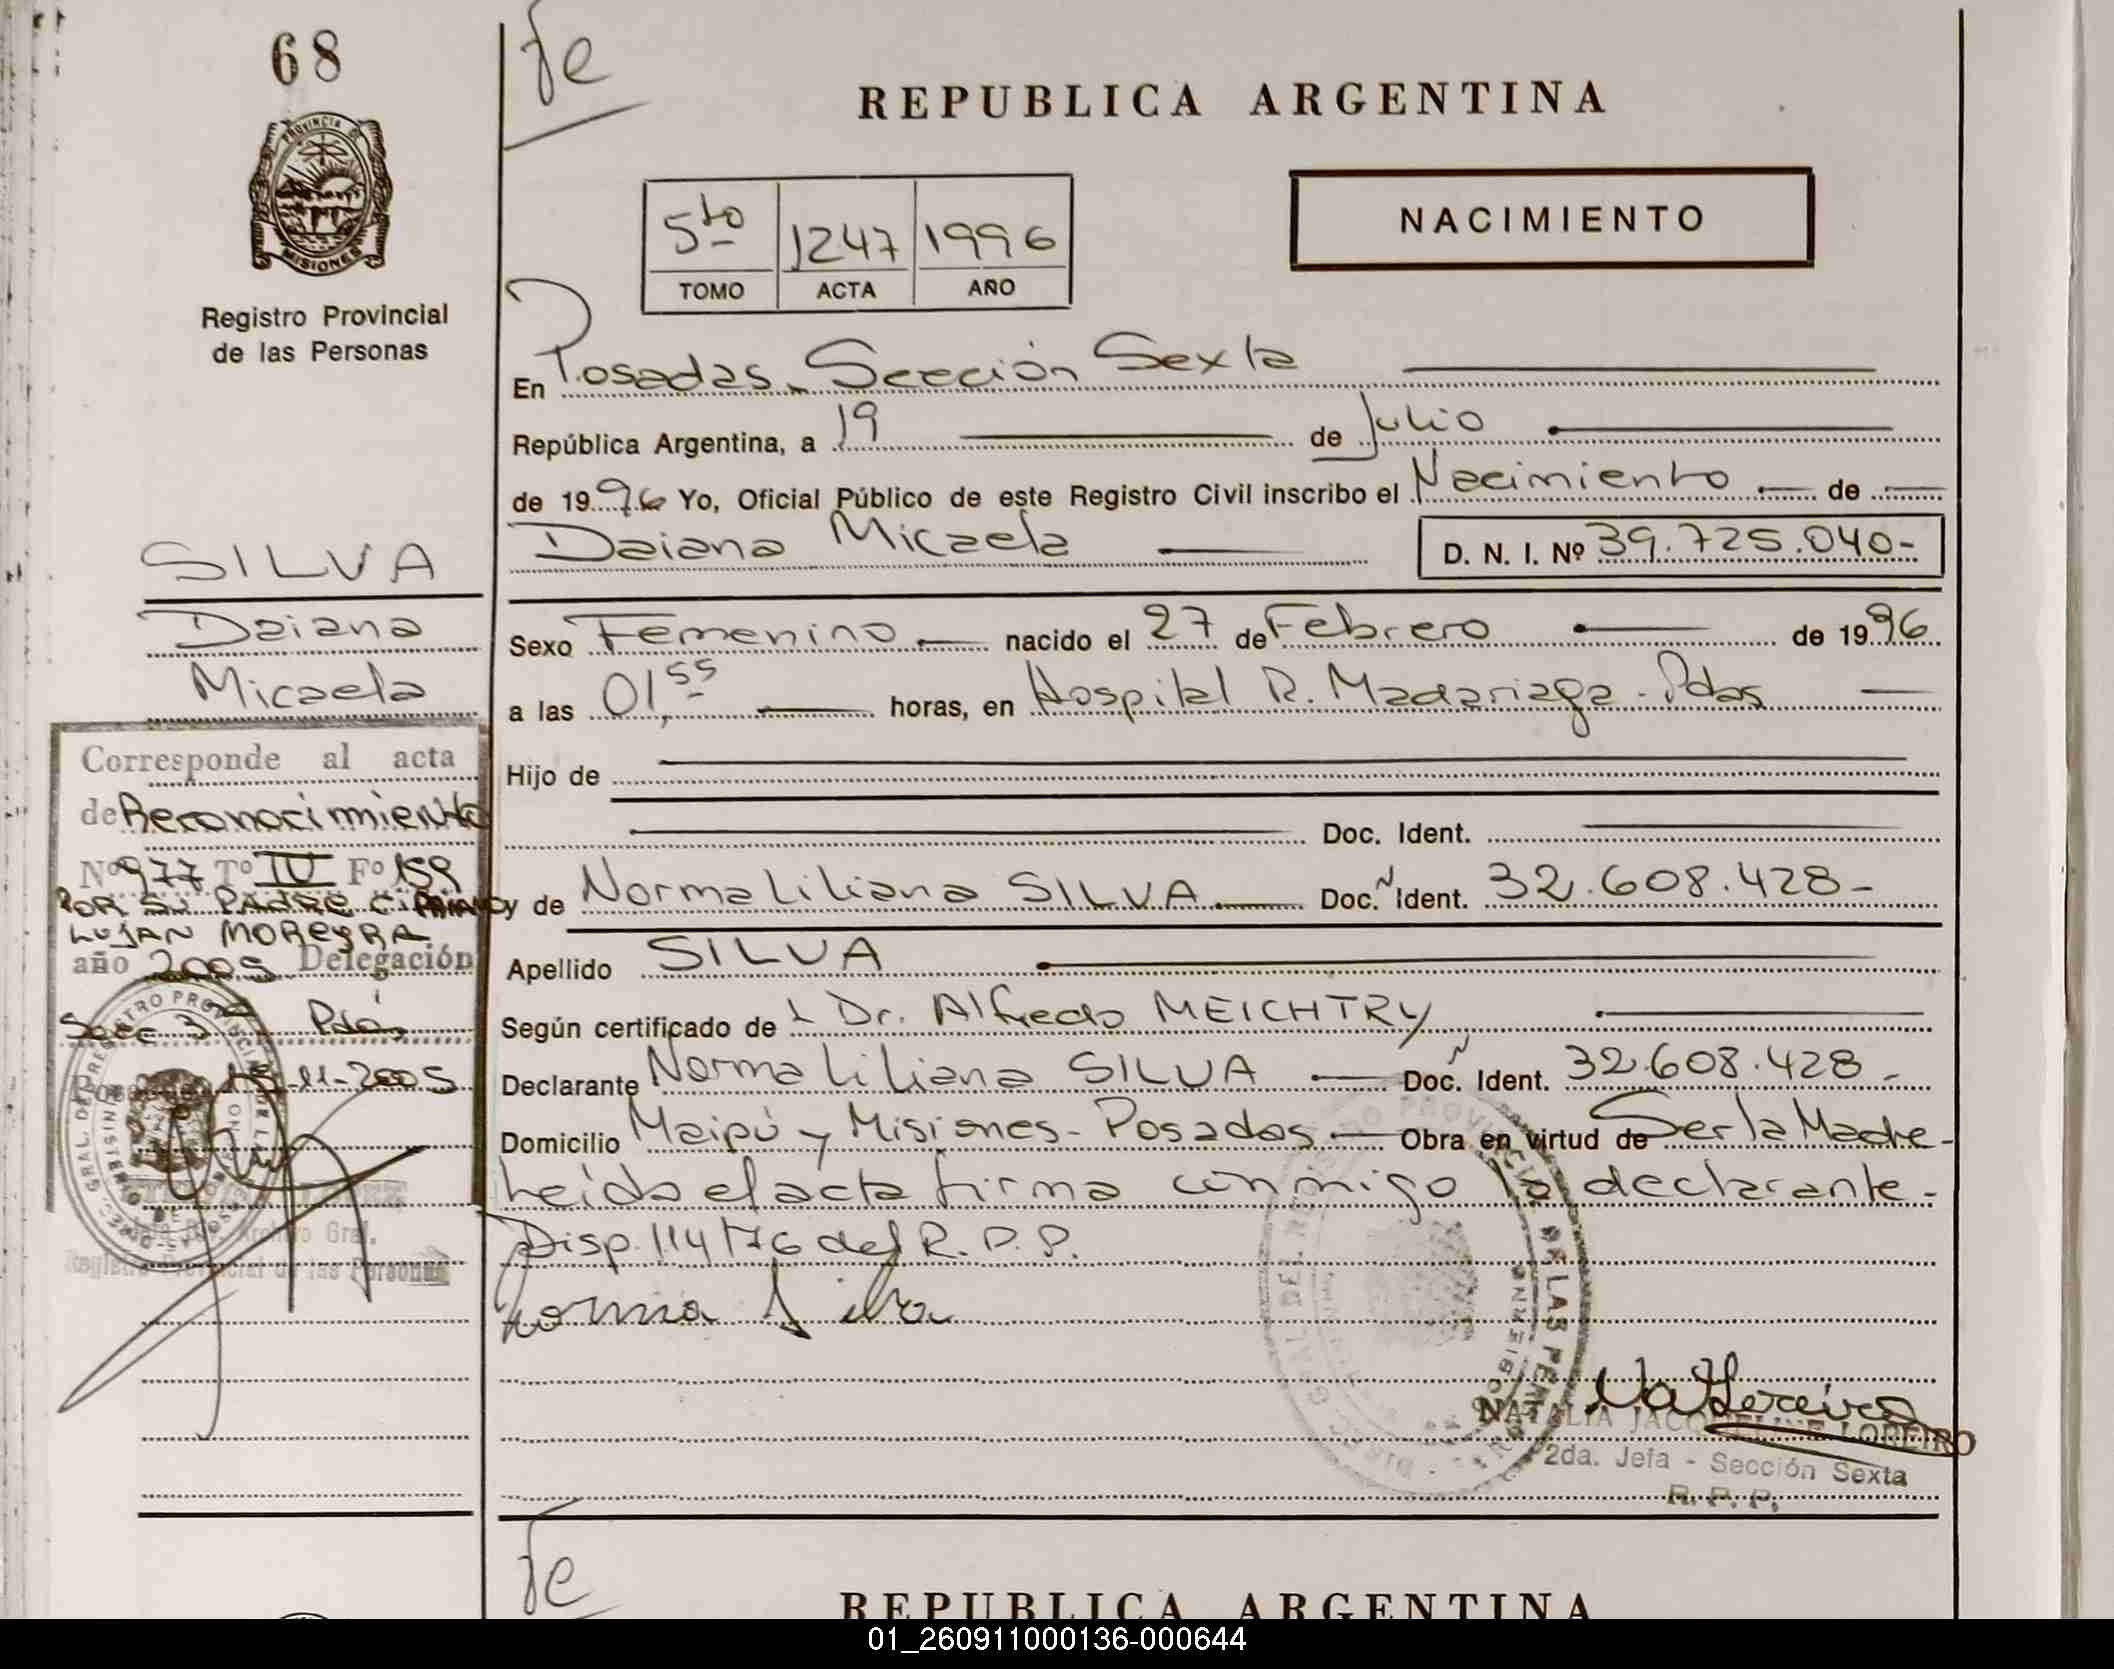 68
fe
REPUBLICA ARGENTINA
PROVINCIA DE
MISIONES
Registro Provincial
de las Personas
5to 1247 1996
TOMO ACTA AÑO
NACIMIENTO
En Posadas, Sección Sexta
República Argentina, a 19 de Julio
de 1996 Yo, Oficial Público de este Registro Civil inscribo el Nacimiento de
Daiana Micaela D. N. I. Nº 39.725.040-
SILVA
Daiana
Micaela
Sexo Femenino nacido el 27 de Febrero de 1996
a las 01,55 horas, en Hospital R. Madariaga - Pdas
Hijo de
Doc. Ident.
y de Norma Liliana SILVA Doc. Ident. 32.608.428-
Apellido SILVA
Según certificado de L Dr. Alfredo MEICHTRY
Declarante Norma Liliana SILVA Doc. Ident. 32.608.428-
Domicilio Maipú y Misiones - Posadas Obra en virtud de Ser la Madre-
Leída el acta firma conmigo la declarante-
Disp. 114/76 del R.P.P.
Norma Silva
Corresponde al acta
de Reconocimiento
Nº 977 Tº IV Fº 159
POR SU PADRE CIPRIANO
LUJAN MOREYRA
año 2005 Delegación
Secc 3ª Pdas
Posadas -11-2005
Archivo Gral.
Registro Provincial de las Personas
NATALIA JACQUELINE LOREIRO
2da. Jefa - Sección Sexta
R. P. P.
fe
REPUBLICA ARGENTINA
01_260911000136-000644